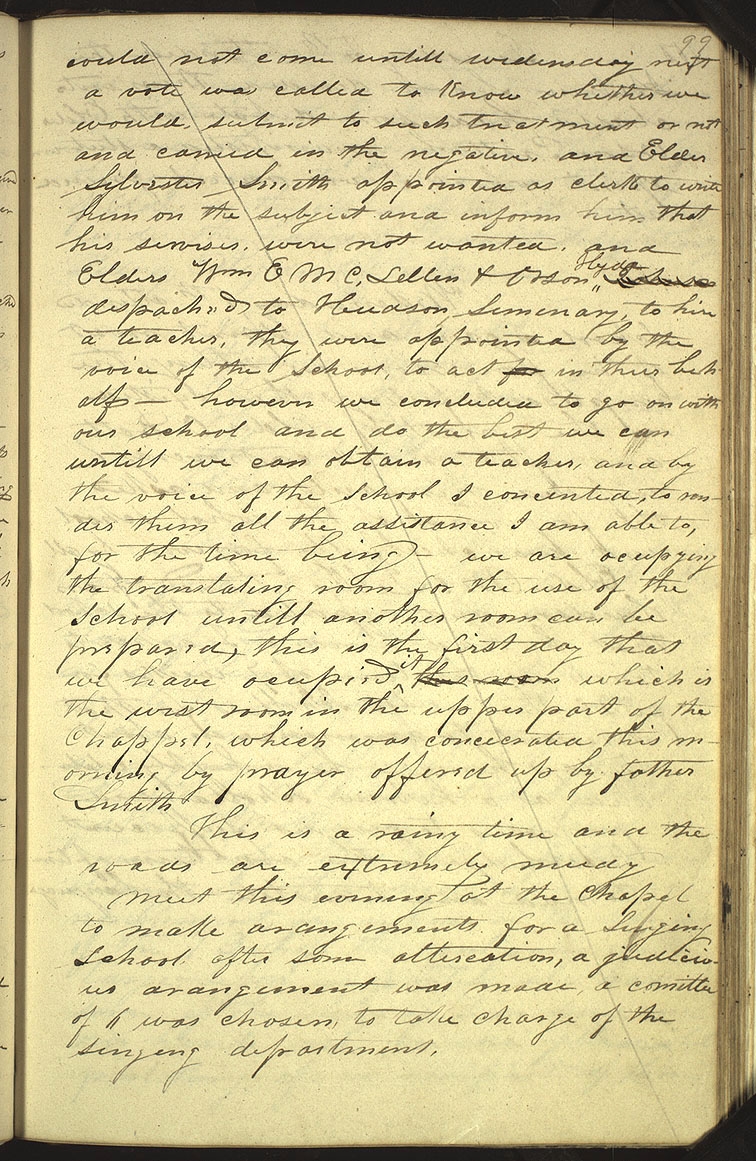 99
could not come untill widensday next
a vote was called to know whether we
would, submit to such treatment or not
and carried in the negative, and Elder
Sylvester Smith appointed as clerk to write
him on the subject and inform him that
his servises, were not wanted, and
Elders Wm E Mc,Lellen & Orson Hyde
despached to Hudson Seminary, to hire
a teacher, they were appointed by the
voice of the School, to act for in their beh-
alf— however we concluded to go on with
our school and do the best we can
untill we can obtain a teacher, and by
the voice of the School I concented, to ren-
der them all the assistance I am able to,
for the time being— we are ocupying
the translating room for the use of the
School untill another room can be
prepared, this is the first day that
we have ocupied it this room which is
the west room in the upper part of the
Chappel, which was concecrated this m-
orning by prayer offered up by father
Smith
This is a rainy time and the
roads are extremely mudy
meet this evening at the Chapel
to make arangements for a Singing
School after some altercation, a judicio-
us arangement was made, a comittee
of 6 was chosen, to take charge of the
singing department.